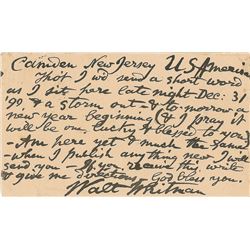 Camden New Jersey US America
Thot I w'd send a short word
as I sit here late night Dec: 31
'90 & a storm out - & to-morrow a
new year beginning (& I pray it
will be one lucky & blessed to you)
- Am here yet & much the same
- when I publish any thing new I will
send you - If you receive this, write
& give me directions - God bless you
Walt Whitman